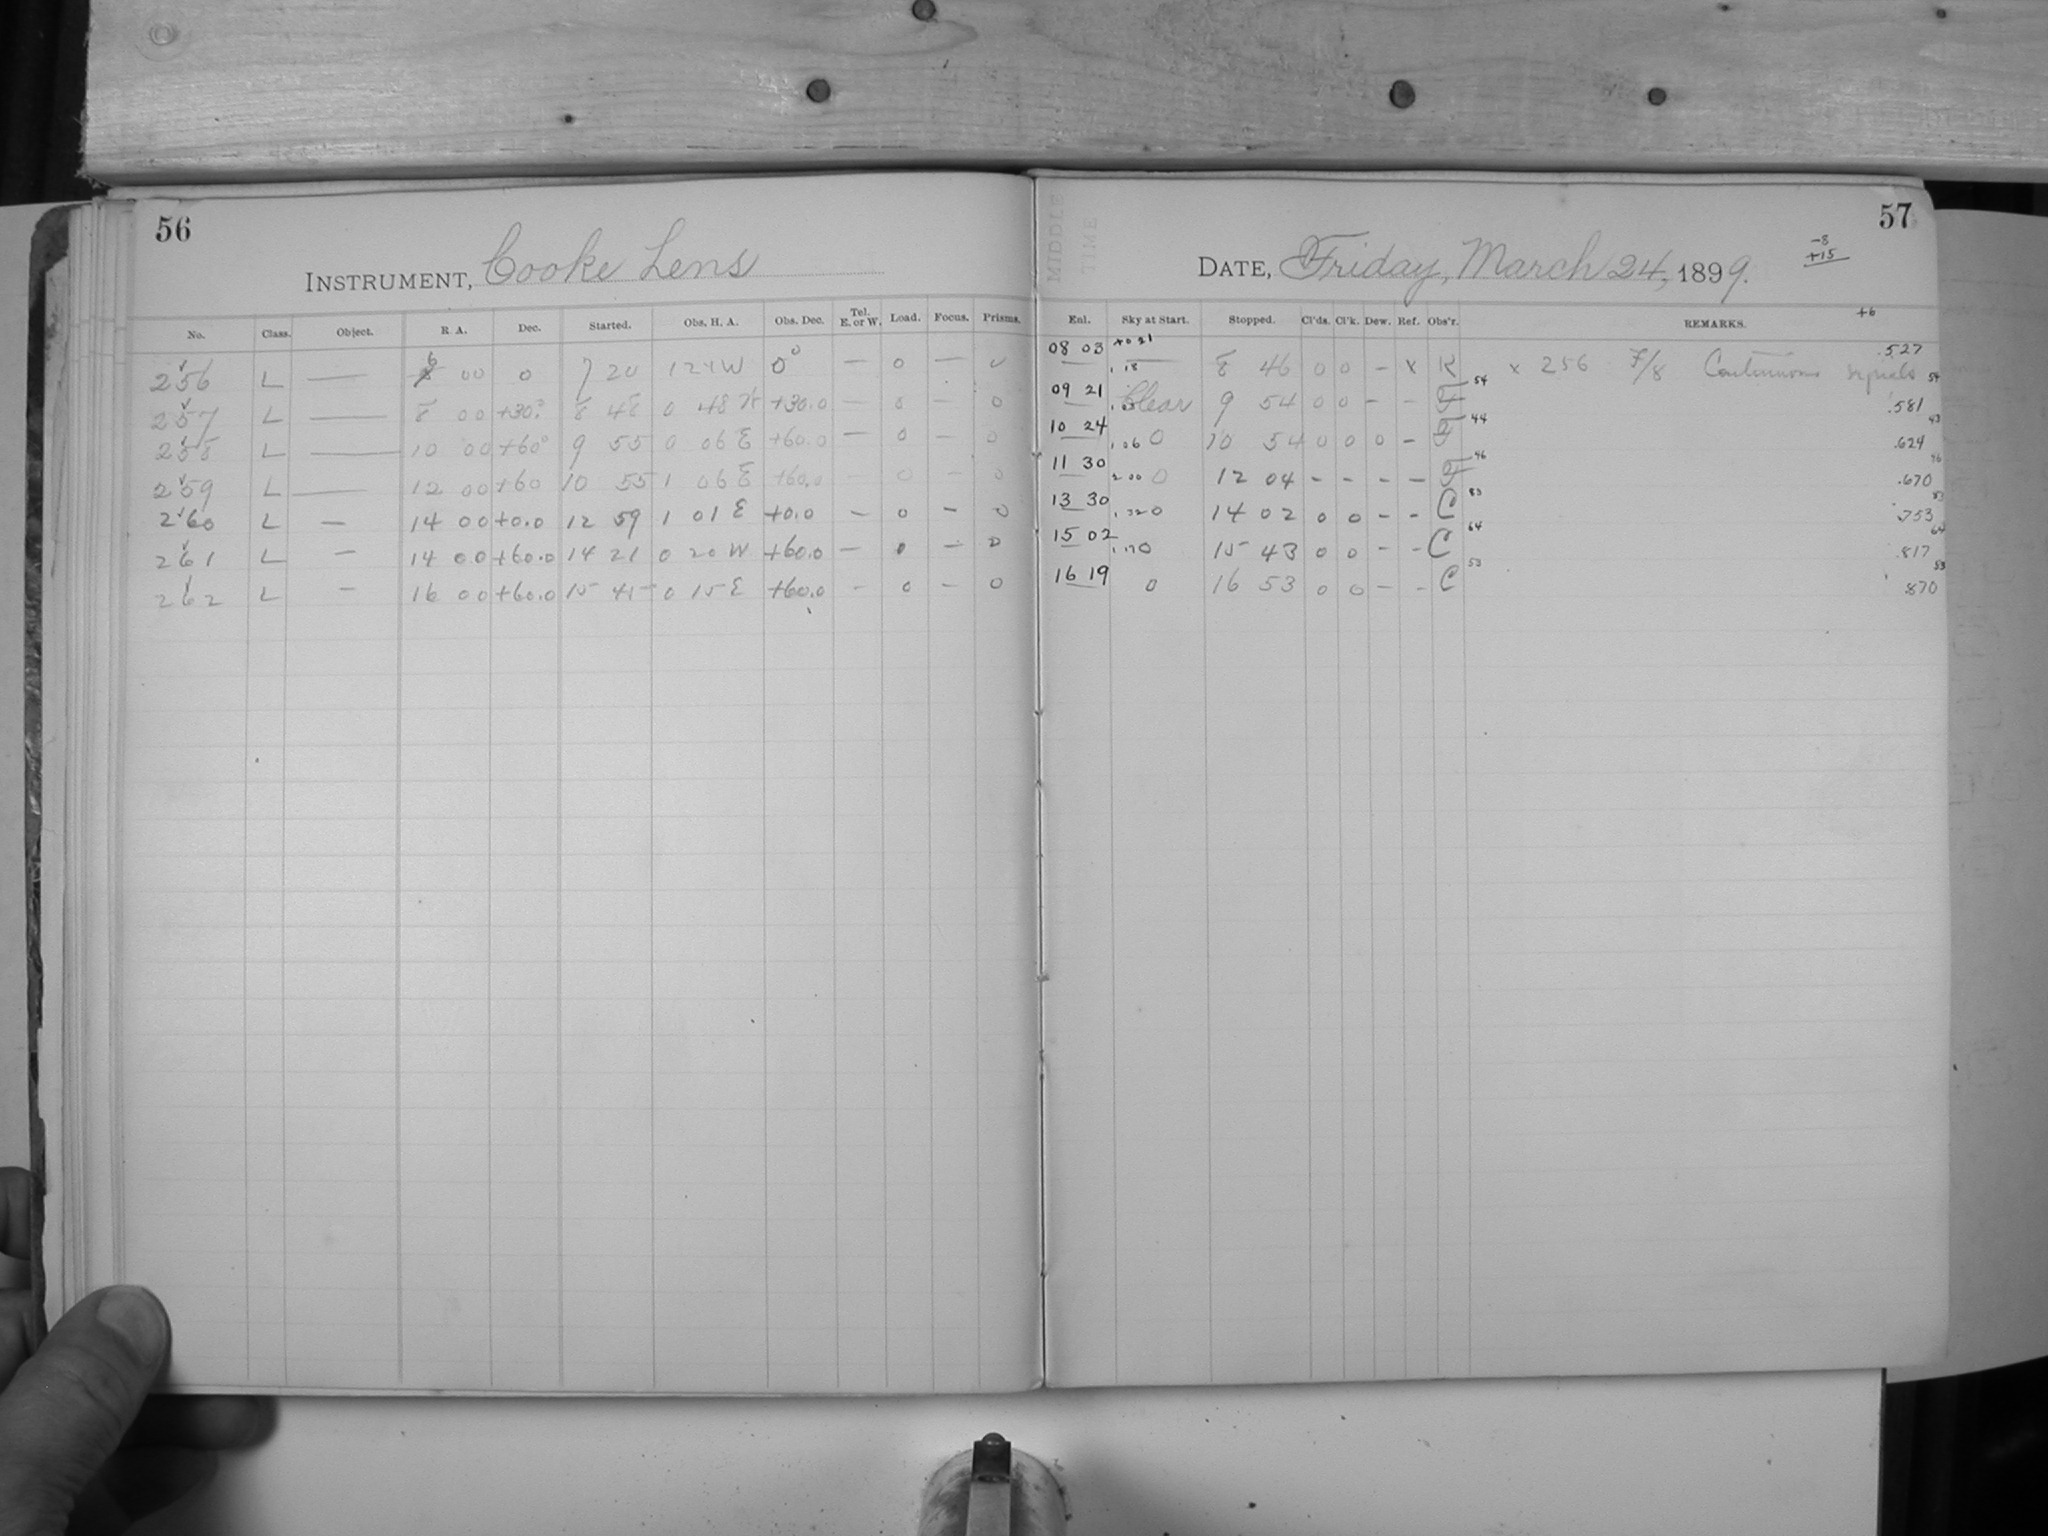 56
INSTRUMENT, Cooke Lens
No. Class. Object. R. A. Dec. Started. Obs. H. A. Obs. Dec. Tel. E. or W. Load. Focus. Prisms.
256 L — 6 00 0 7 20 1 24 W 0° — 0 — 0
257 L — 8 00 +30° 8 48 0 48 W +30.0 — 0 — 0
258 L — 10 00 +60° 9 55 0 06 E +60.0 — 0 — 0
259 L — 12 00 +60 10 55 1 06 E +60.0 — 0 — 0
260 L — 14 00 +0.0 12 59 1 01 E +0.0 — 0 — 0
261 L — 14 00 +60.0 14 21 0 20 W +60.0 — 0 — 0
262 L — 16 00 +60.0 15 45 0 15 E +60.0 - 0 - 0
57
MIDDLE
TIME
DATE, Friday, March 24, 1899.
-8
+15
+6
Enl. Sky at Start. Stopped. Cl'ds. Cl'k. Dew. Ref. Obs'r. REMARKS.
08 03 +0 21 — 8 46 0 0 - x K x 256 F/8 Continuous .527
09 21 Clear 9 54 0 0 - - F 54 .581 54
10 24 .06 0 10 54 0 0 0 - F 44 .624 43
11 30 2 00 0 12 04 - - - - F 46 .670 46
13 30 0 14 02 0 0 - - C 83 .753 83
15 02 0 15 43 0 0 - - C 64 .817 64
16 19 0 16 53 0 0 - - C 53 .870 53